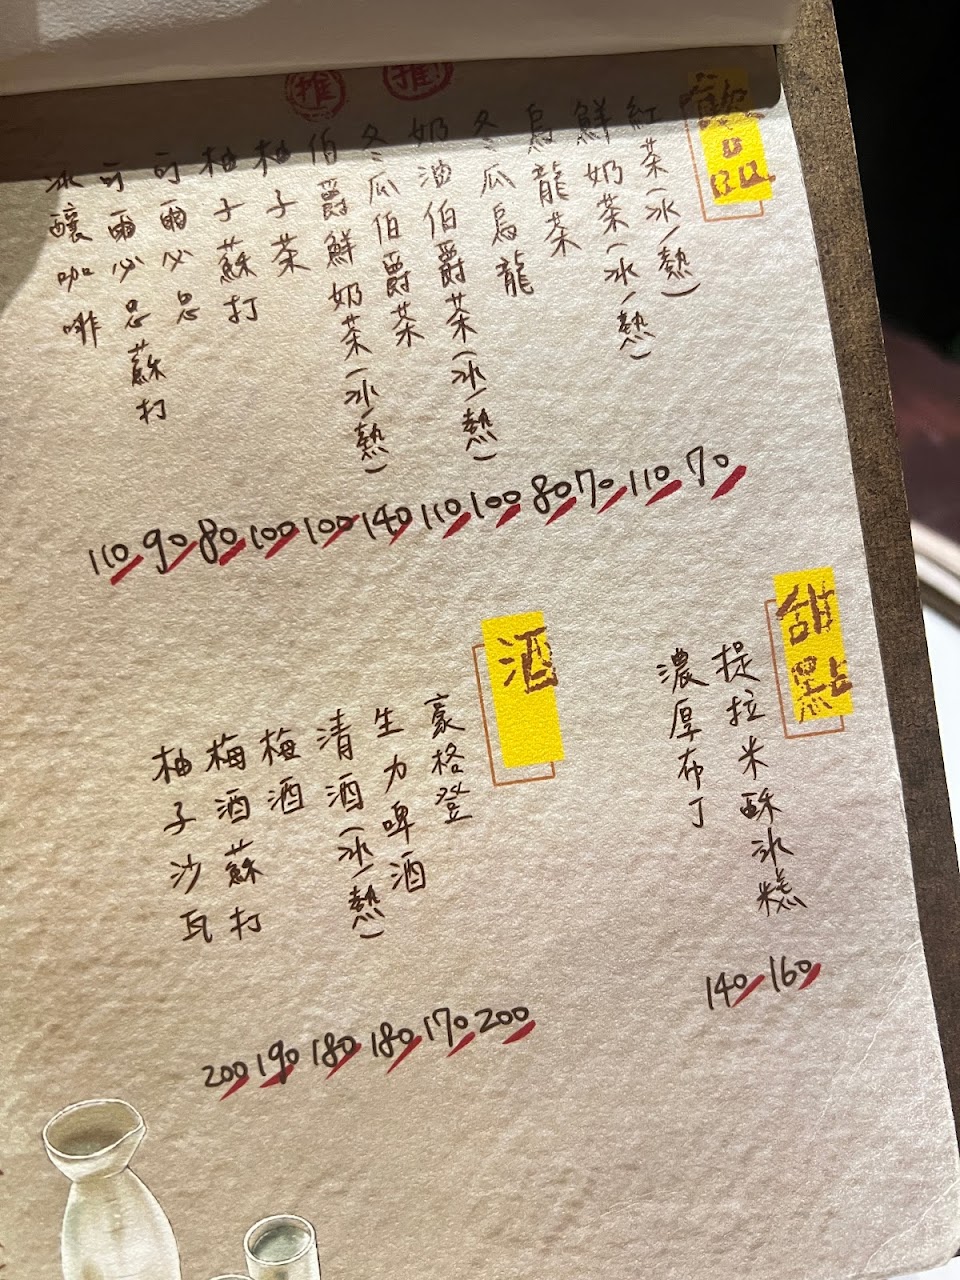 飲品
紅茶(冰/熱) 70
鮮奶茶(冰/熱) 110
烏龍茶 70
冬瓜烏龍 80
推
奶油伯爵茶(冰/熱) 100
冬瓜伯爵茶 110
推
伯爵鮮奶茶(冰/熱) 140
柚子茶 100
柚子蘇打 100
可爾必思 80
可爾必思蘇打 90
冰釀咖啡 110
甜點
提拉米酥冰糕 160
濃厚布丁 140
酒
豪格登 200
生力啤酒 170
清酒(冰/熱) 180
梅酒 180
梅酒蘇打 190
柚子沙瓦 200